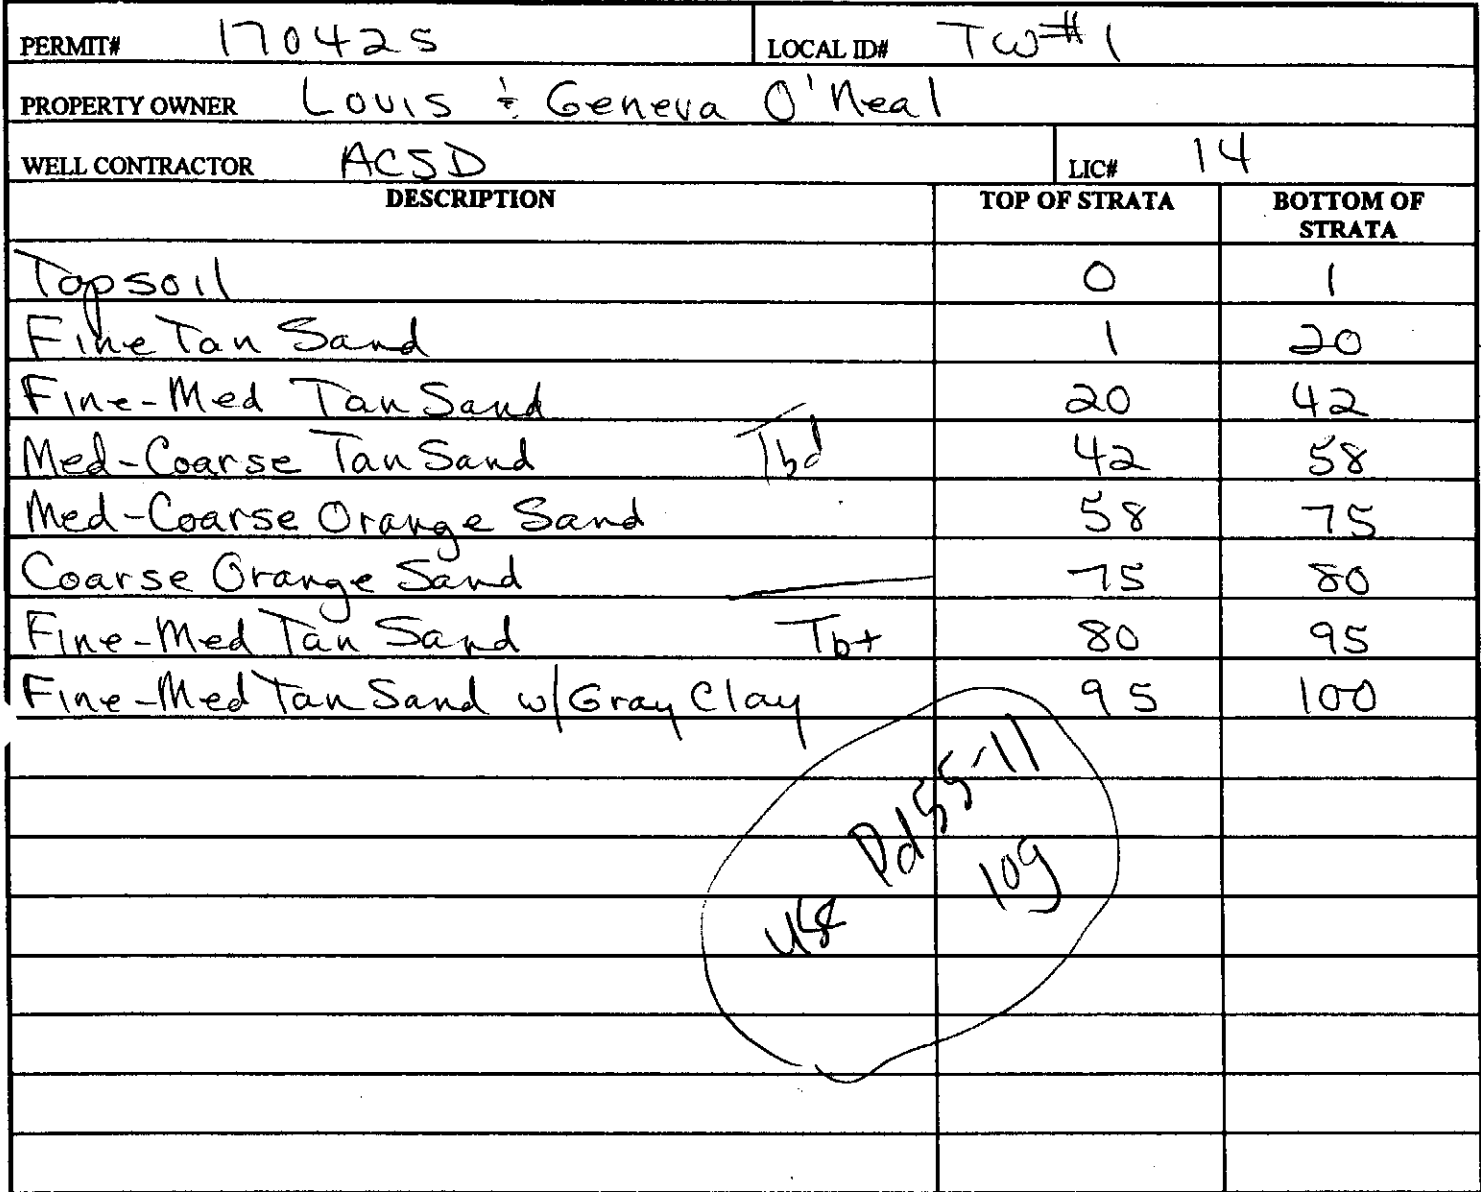 PERMIT# 170425 LOCAL ID# TW#1
PROPERTY OWNER Louis & Geneva O'Neal
WELL CONTRACTOR ACSD LIC# 14
DESCRIPTION TOP OF STRATA BOTTOM OF STRATA
Topsoil 0 1
Fine Tan Sand 1 20
Fine-Med Tan Sand 20 42
Med-Coarse Tan Sand Tbd 42 58
Med-Coarse Orange Sand 58 75
Coarse Orange Sand 75 80
Fine-Med Tan Sand Tbt 80 95
Fine-Med Tan Sand w/Gray Clay 95 100
use Pd55-11
log